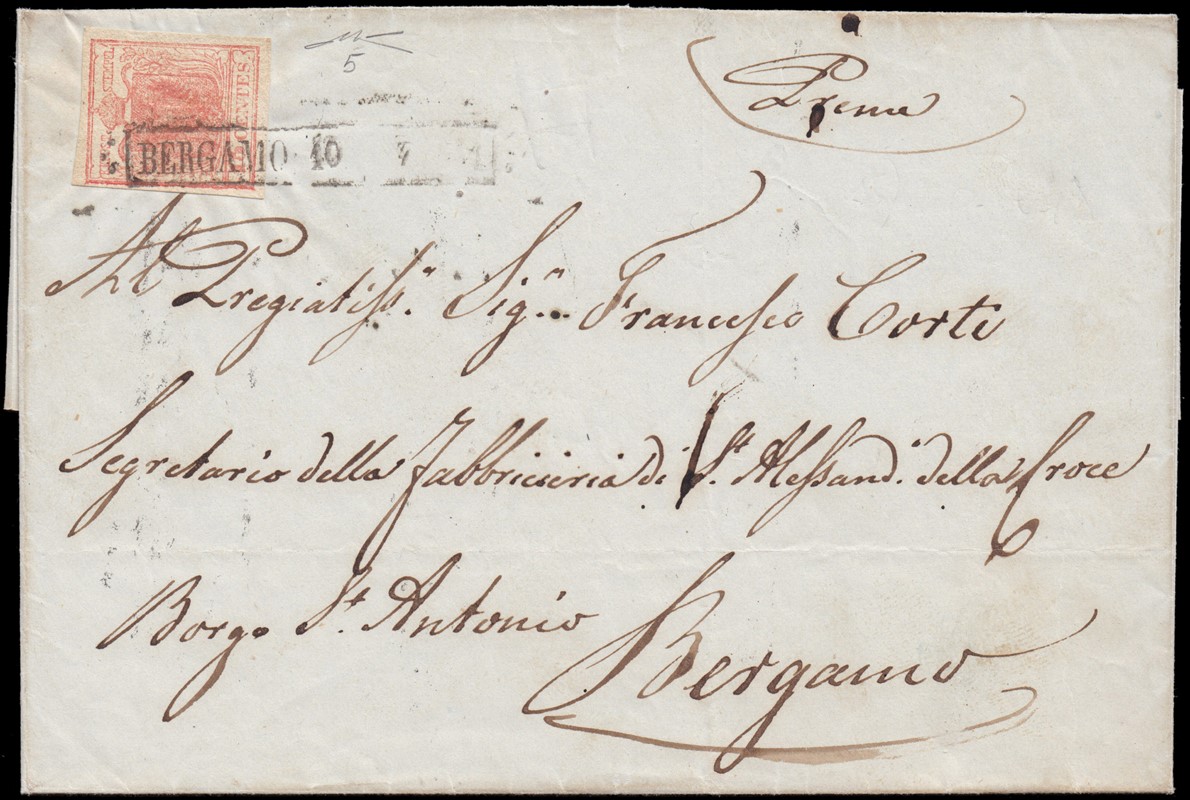 KKPOST-STEMPEL
CENTES.
5
Preme
BERGAMO 10
Al Pregiatiss.º Sig.r Francesco Corti
Segretario della Fabbricieria di S.t Alessand.º della Croce
Borgo S.t Antonio
Bergamo